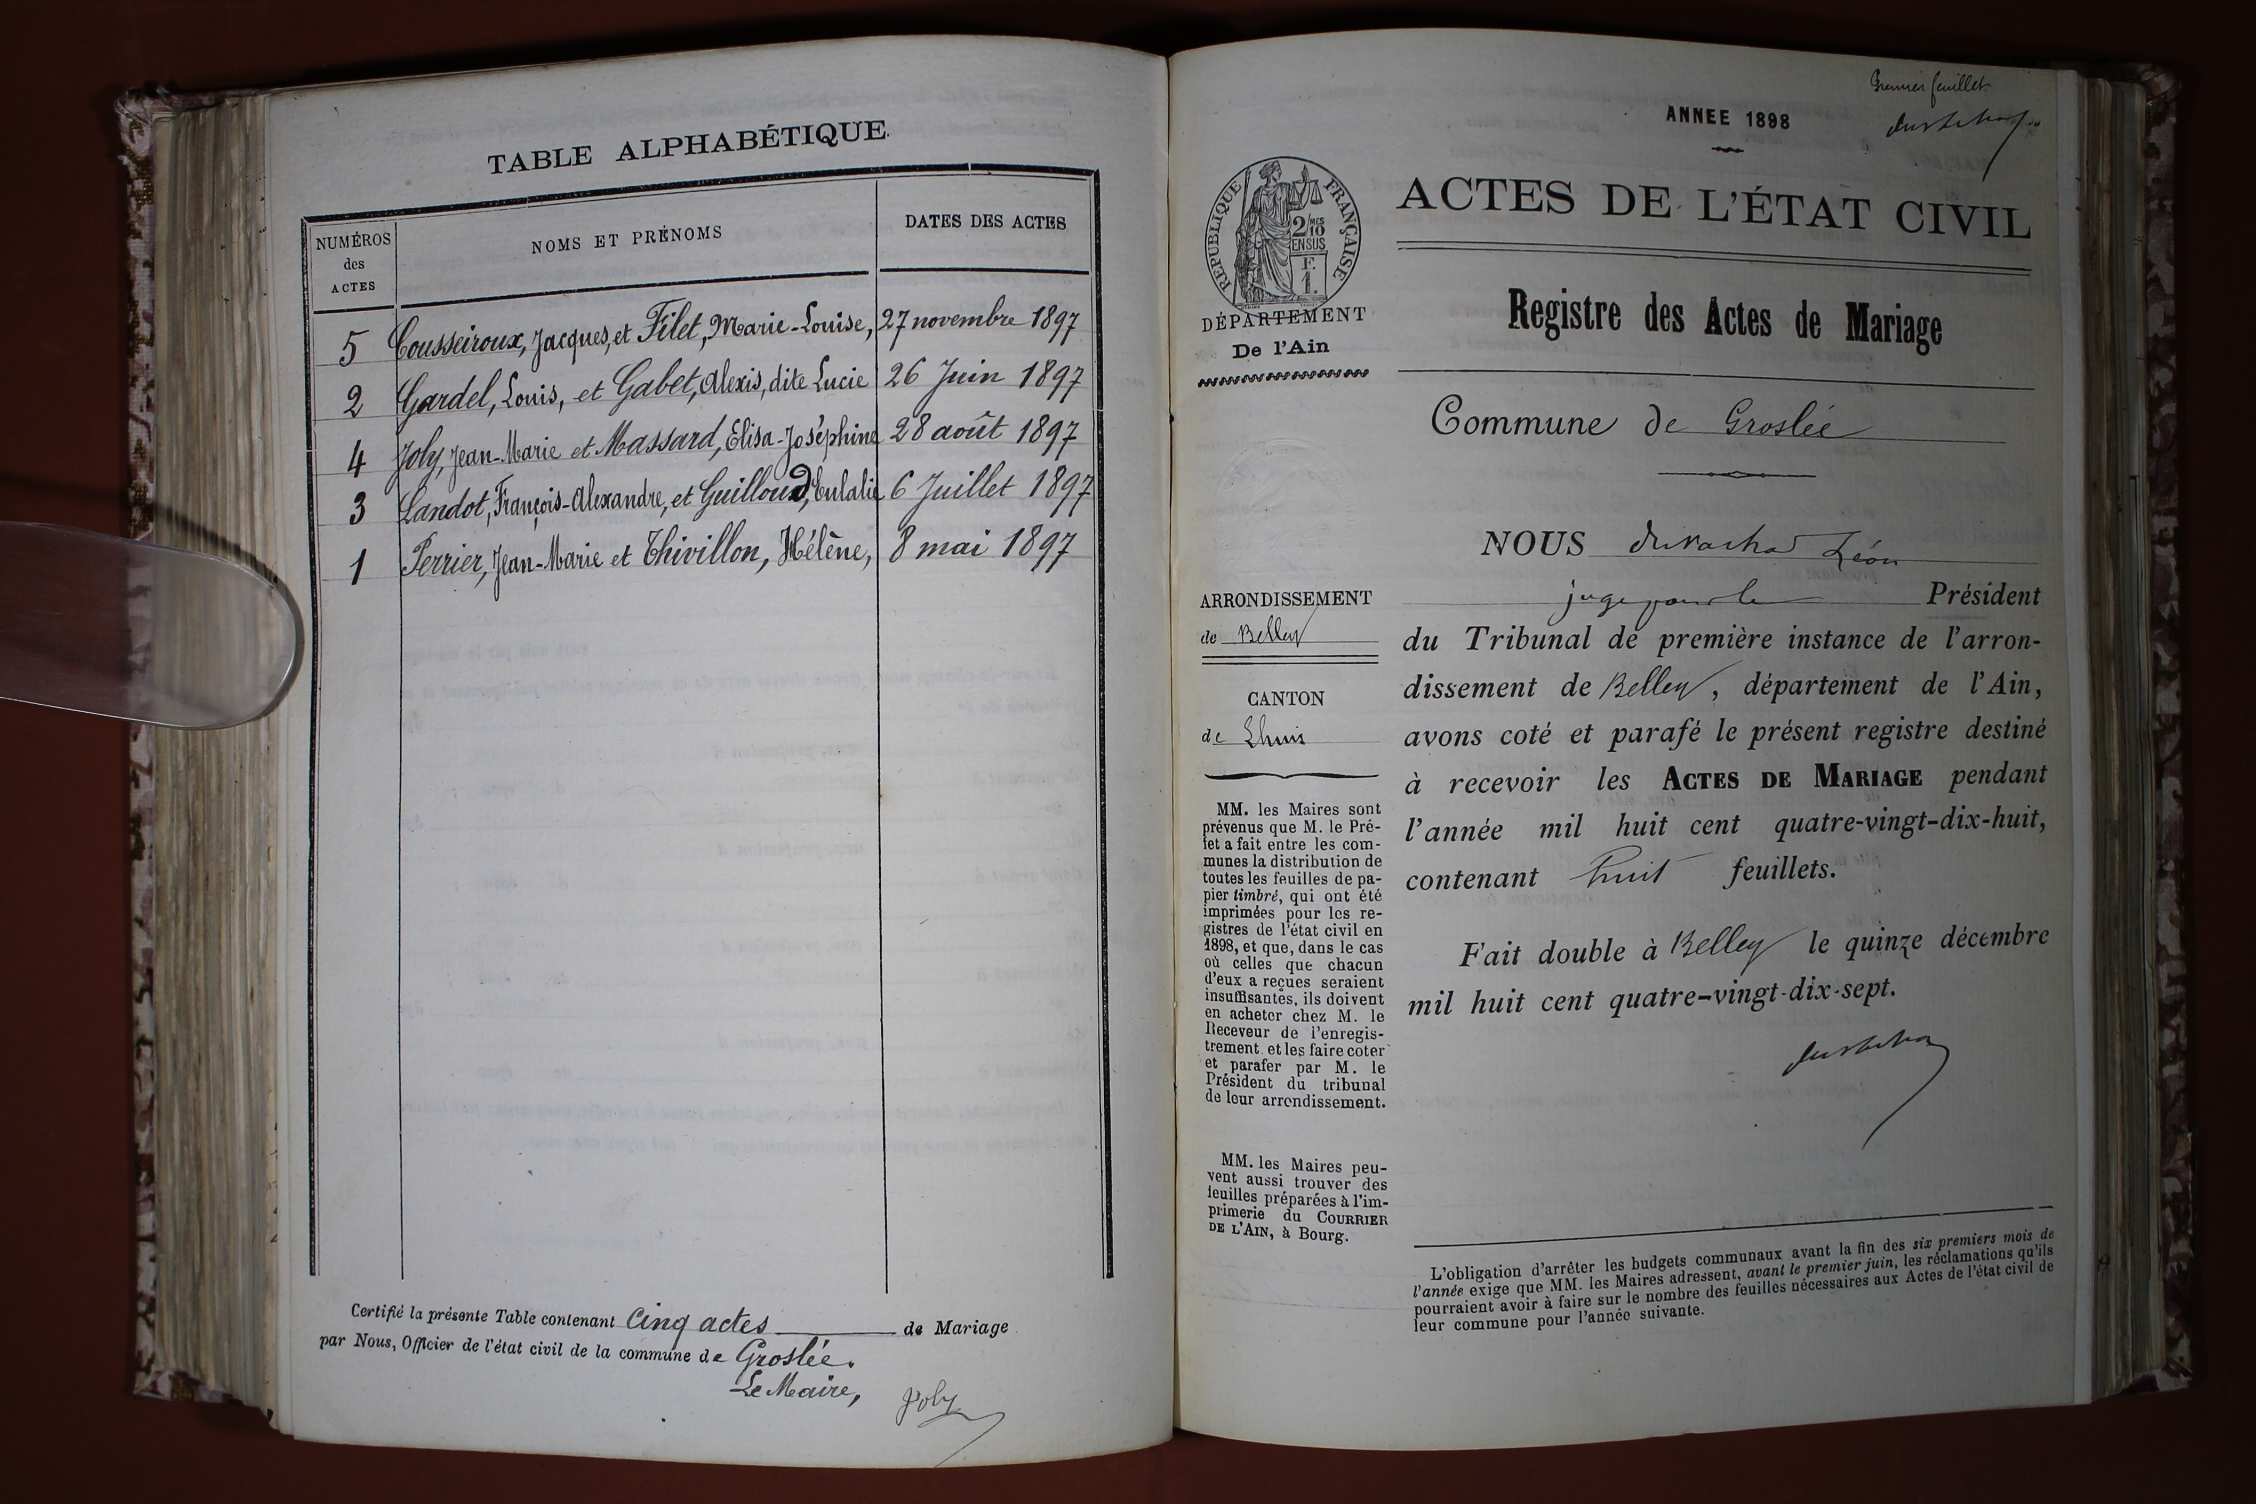 TABLE ALPHABÉTIQUE.
NUMÉROS
des
ACTES
NOMS ET PRÉNOMS
DATES DES ACTES
5 Cousseiroux, Jacques, et Filet, Marie-Louise, 27 novembre 1897
2 Gardel, Louis, et Gabet, Alexis, dite Lucie 26 Juin 1897
4 Joly, Jean-Marie et Massard, Elisa-Joséphine 28 août 1897
3 Landot, François-Alexandre, et Guilloud, Eulalie 6 Juillet 1897
1 Perrier, Jean-Marie et Thivillon, Hélène, 8 mai 1897
Certifié la présente Table contenant Cinq actes de Mariage
par Nous, Officier de l'état civil de la commune de Groslée.
Le Maire,
Joly
Premier feuillet
ANNEE 1898
ACTES DE L'ÉTAT CIVIL
RÉPUBLIQUE FRANÇAISE
2/10 MES
EN SUS
F.
1.
DÉPARTEMENT
De l'Ain
Registre des Actes de Mariage
Commune de Groslée
ARRONDISSEMENT
de Belley
CANTON
de Lhuis
MM. les Maires sont
prévenus que M. le Pré-
fet a fait entre les com-
munes la distribution de
toutes les feuilles de pa-
pier timbré, qui ont été
imprimées pour les re-
gistres de l'état civil en
1898, et que, dans le cas
où celles que chacun
d'eux a reçues seraient
insuffisantes, ils doivent
en acheter chez M. le
Receveur de l'enregis-
trement et les faire coter
et parafer par M. le
Président du tribunal
de leur arrondissement.
MM. les Maires peu-
vent aussi trouver des
feuilles préparées à l'im-
primerie du COURRIER
DE L'AIN, à Bourg.
NOUS Léon
juge pour le Président
du Tribunal de première instance de l'arron-
dissement de Belley, département de l'Ain,
avons coté et parafé le présent registre destiné
à recevoir les ACTES DE MARIAGE pendant
l'année mil huit cent quatre-vingt-dix-huit,
contenant huit feuillets.
Fait double à Belley le quinze décembre
mil huit cent quatre-vingt-dix-sept.
L'obligation d'arrêter les budgets communaux avant la fin des six premiers mois de
l'année exige que MM. les Maires adressent, avant le premier juin, les réclamations qu'ils
pourraient avoir à faire sur le nombre des feuilles nécessaires aux Actes de l'état civil de
leur commune pour l'année suivante.